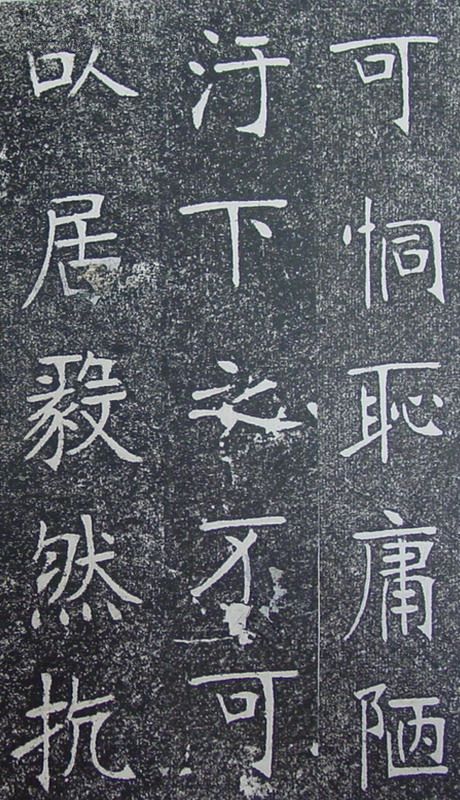 可恫恥庸陋
汙下之不可
以居毅然抗